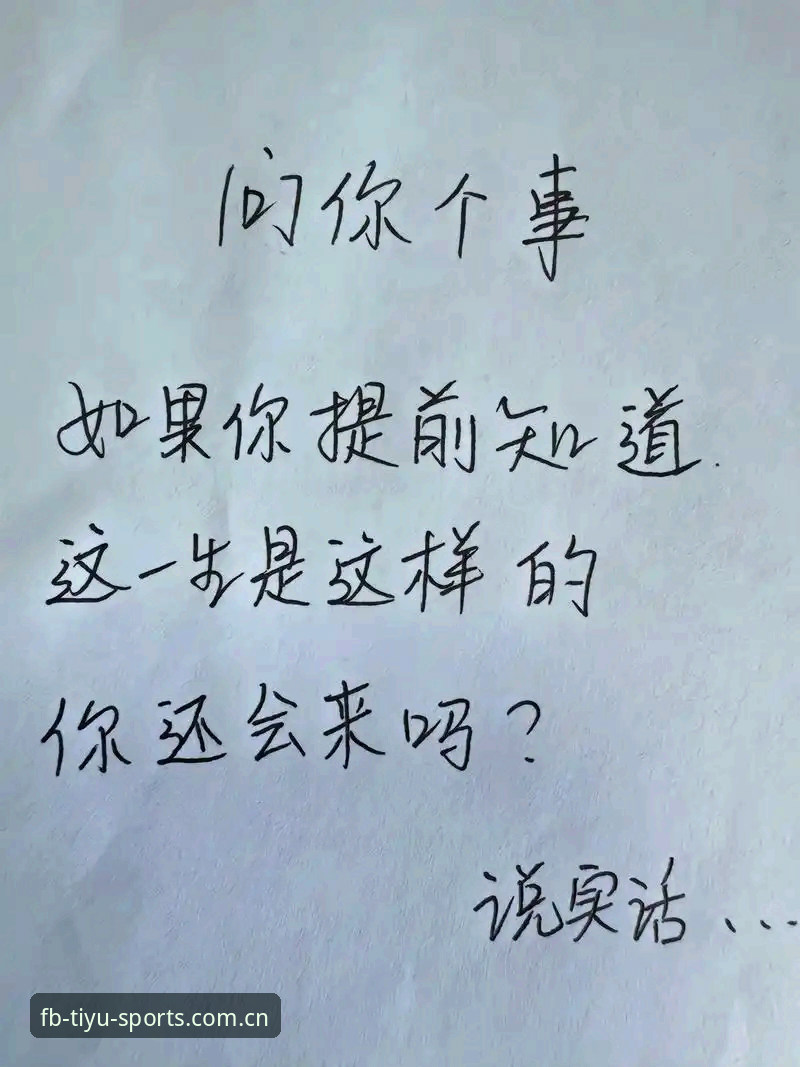 问你个事
如果你提前知道.
这一生是这样的
你还会来吗?
说实话...
fb-tiyu-sports.com.cn